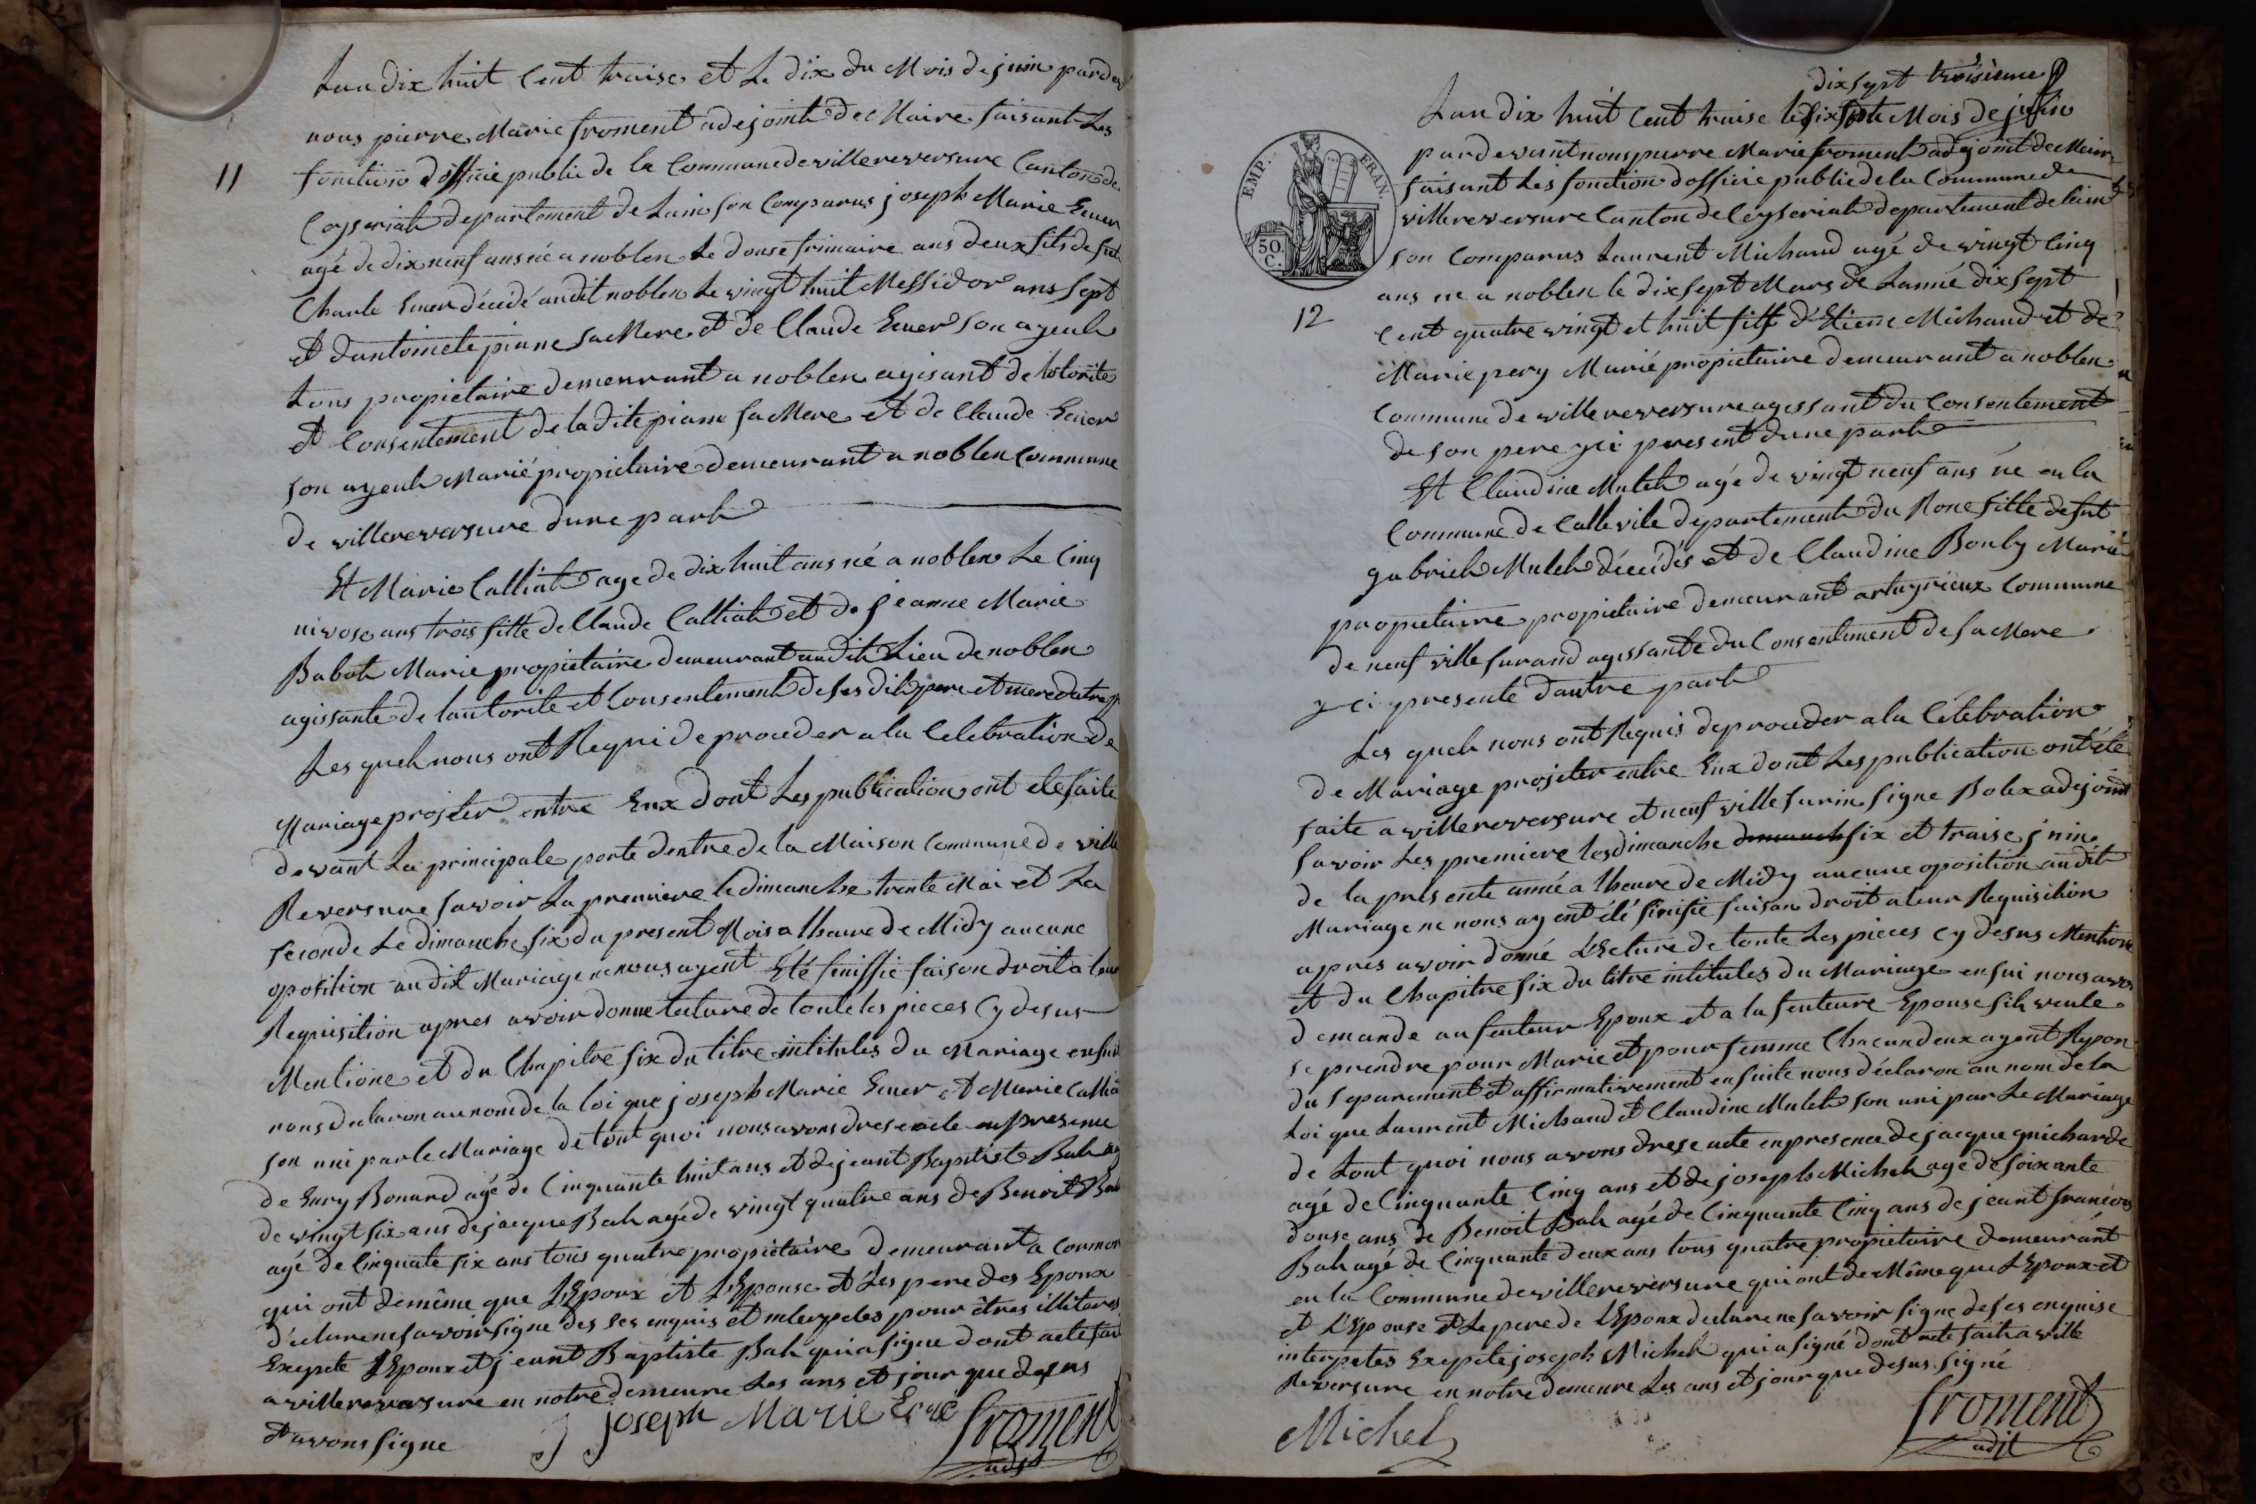 11
Lan dix huit Cent traise et Le dix du Mois de juin par de
nous pierre Marie froment adejoint de Maire faisant Les
fonction d'officie public de la Commune de villereversure Canton de
Ceyseriat departement de Lain son Comparus joseph Marie
agé de dix neuf ans né a noblen Le douse frimaire ans deux fils de fut
Charle décidé audit noblen Le vingt huit Messidor ans sept
et dantoinete piane sa Mere et de Claude son ayeul
tous propietaire demeurant a noblen agisant de lotorite
et Consentement de ladite piane sa Mere et de Claude
son ayeul Marié propietaire demeurant a noblen Commune
de villereversure dune part
Et Marie Calliat age de dix huit ans né a noblen Le Cinq
nivose ans trois fille de Claude Calliat et de jeanne Marie
Babat Marie propietaire demeurant audit Lieu de noblen
agissante de lautorite et Consentement de ses dit pere et mere dautre p
Les quel nous ont Requi de proceder a la Celebration de
Mariage projeter entre Eux dont Les publication ont ete faite
devant La principale porte dentre de la Maison Commune de ville
Reversure savoir La premiere le dimanche trente Mai et La
seconde Le dimanche six du present Mois a lheure de Midy aucune
oposition audit Mariage ne nous ayent Eté siniffie faison droit a leur
Requisition apres avoir donne lecture de toute les pieces Cy desus
Mentione et du Chapitre six du titre intitules du Mariage ensuit
nous declaron au nom de la loi que joseph Marie et Marie Callia
son uni par le Mariage de tout quoi nous avons drese acte en presence
de Bonard agé de Cinquante huit ans et de jeant Baptiste Bah
de vingt six ans de jacque Bah agé de vingt quatre ans de Benoit Bah
agé de Cinquate six ans tous quatre propietaire demeurant a Commun
qui ont demême que L'Epoux et L'Epouse et Les pere des Epoux
d'eclure ne savoir signe des ses enquis et interpeles pour êtres illiteres
Exepte L'Epoux et jeant Baptiste Bah qui a signe dont acte fait
a villereversure en notre demeure Les ans et jour que desus
et avons signe
joseph Marie
froment
adjt
EMP. FRAN.
50 C.
12
dix sept troisieme
Lan dix huit Cent traise le Mois de juin
par devant nous pierre Marie froment adejoint de Maire
faisant Les fonction d'officie public de la Commune de
villereversure Canton de Ceyseriat departement de lain
son Comparus Laurent Michaud agé de vingt Cinq
ans ne a noblen le dix sept Mars de Lanné dix sept
Cent quatre vingt et huit fils d'Etiene Michaud et de
Marie pery Marié propietaire demeurant a noblen
Commune de villereversure agissant du Consentement
de son pere yci peresent dune part
Et Claudine Mulet agé de vingt neuf ans né en la
Commune de Calle vile departement du Rone fille de fut
gabriel Mulet décédés et de Claudine Bouby Marié
propietaire propietaire demeurant Commune
de neuf ville surand agissante du Consentement de sa Mere
yci presente dautre part
Les quel nous ont Requis de proceder a la Célébration
de Mariage projeter entre Eux dont Les publication ont été
faite a villereversure et neuf ville surin signe Bolex adejoint
savoir Les premiere les dimanche dimanch six et traise juin
de la presente anné a lheure de Midy aucune oposition audit
Mariage ne nous ayent été sinifie faison droit a leur Requisition
apres avoir donné L'Ecture de toute Les pieces cy desus Mentione
et du Chapitre six du titre intitules du Mariage ensui nous avon
demande au feuteur Epoux et a la feuteure Epouse sil veule
se prendre pour Marie et pour femme Chacun deux ayent Repon
du separement et affirmativement ensuite nous déclaron au nom de la
Loi que Laurent Michaud et Claudine Mulet son uni par Le Mariage
de tout quoi nous avons drese acte en presence de jacque guicharde
agé de Cinquante Cinq ans et de joseph Michel agé de soixante
douse ans de Benoit Bah agé de Cinquante Cinq ans de jeant francois
Bah agé de Cinquante deux ans tous quatre propietaire demeurant
en la Commune de villereversure qui ont de Même que L'Epoux et
et L'Epouse et Le pere de L'Epoux declare ne savoir signe de ses enquise
interpetes Exepte joseph Michel qui a signé dont acte fait a ville
Reversure en notre demeure Les ans et jour que desus signé
Michel
froment
adjt